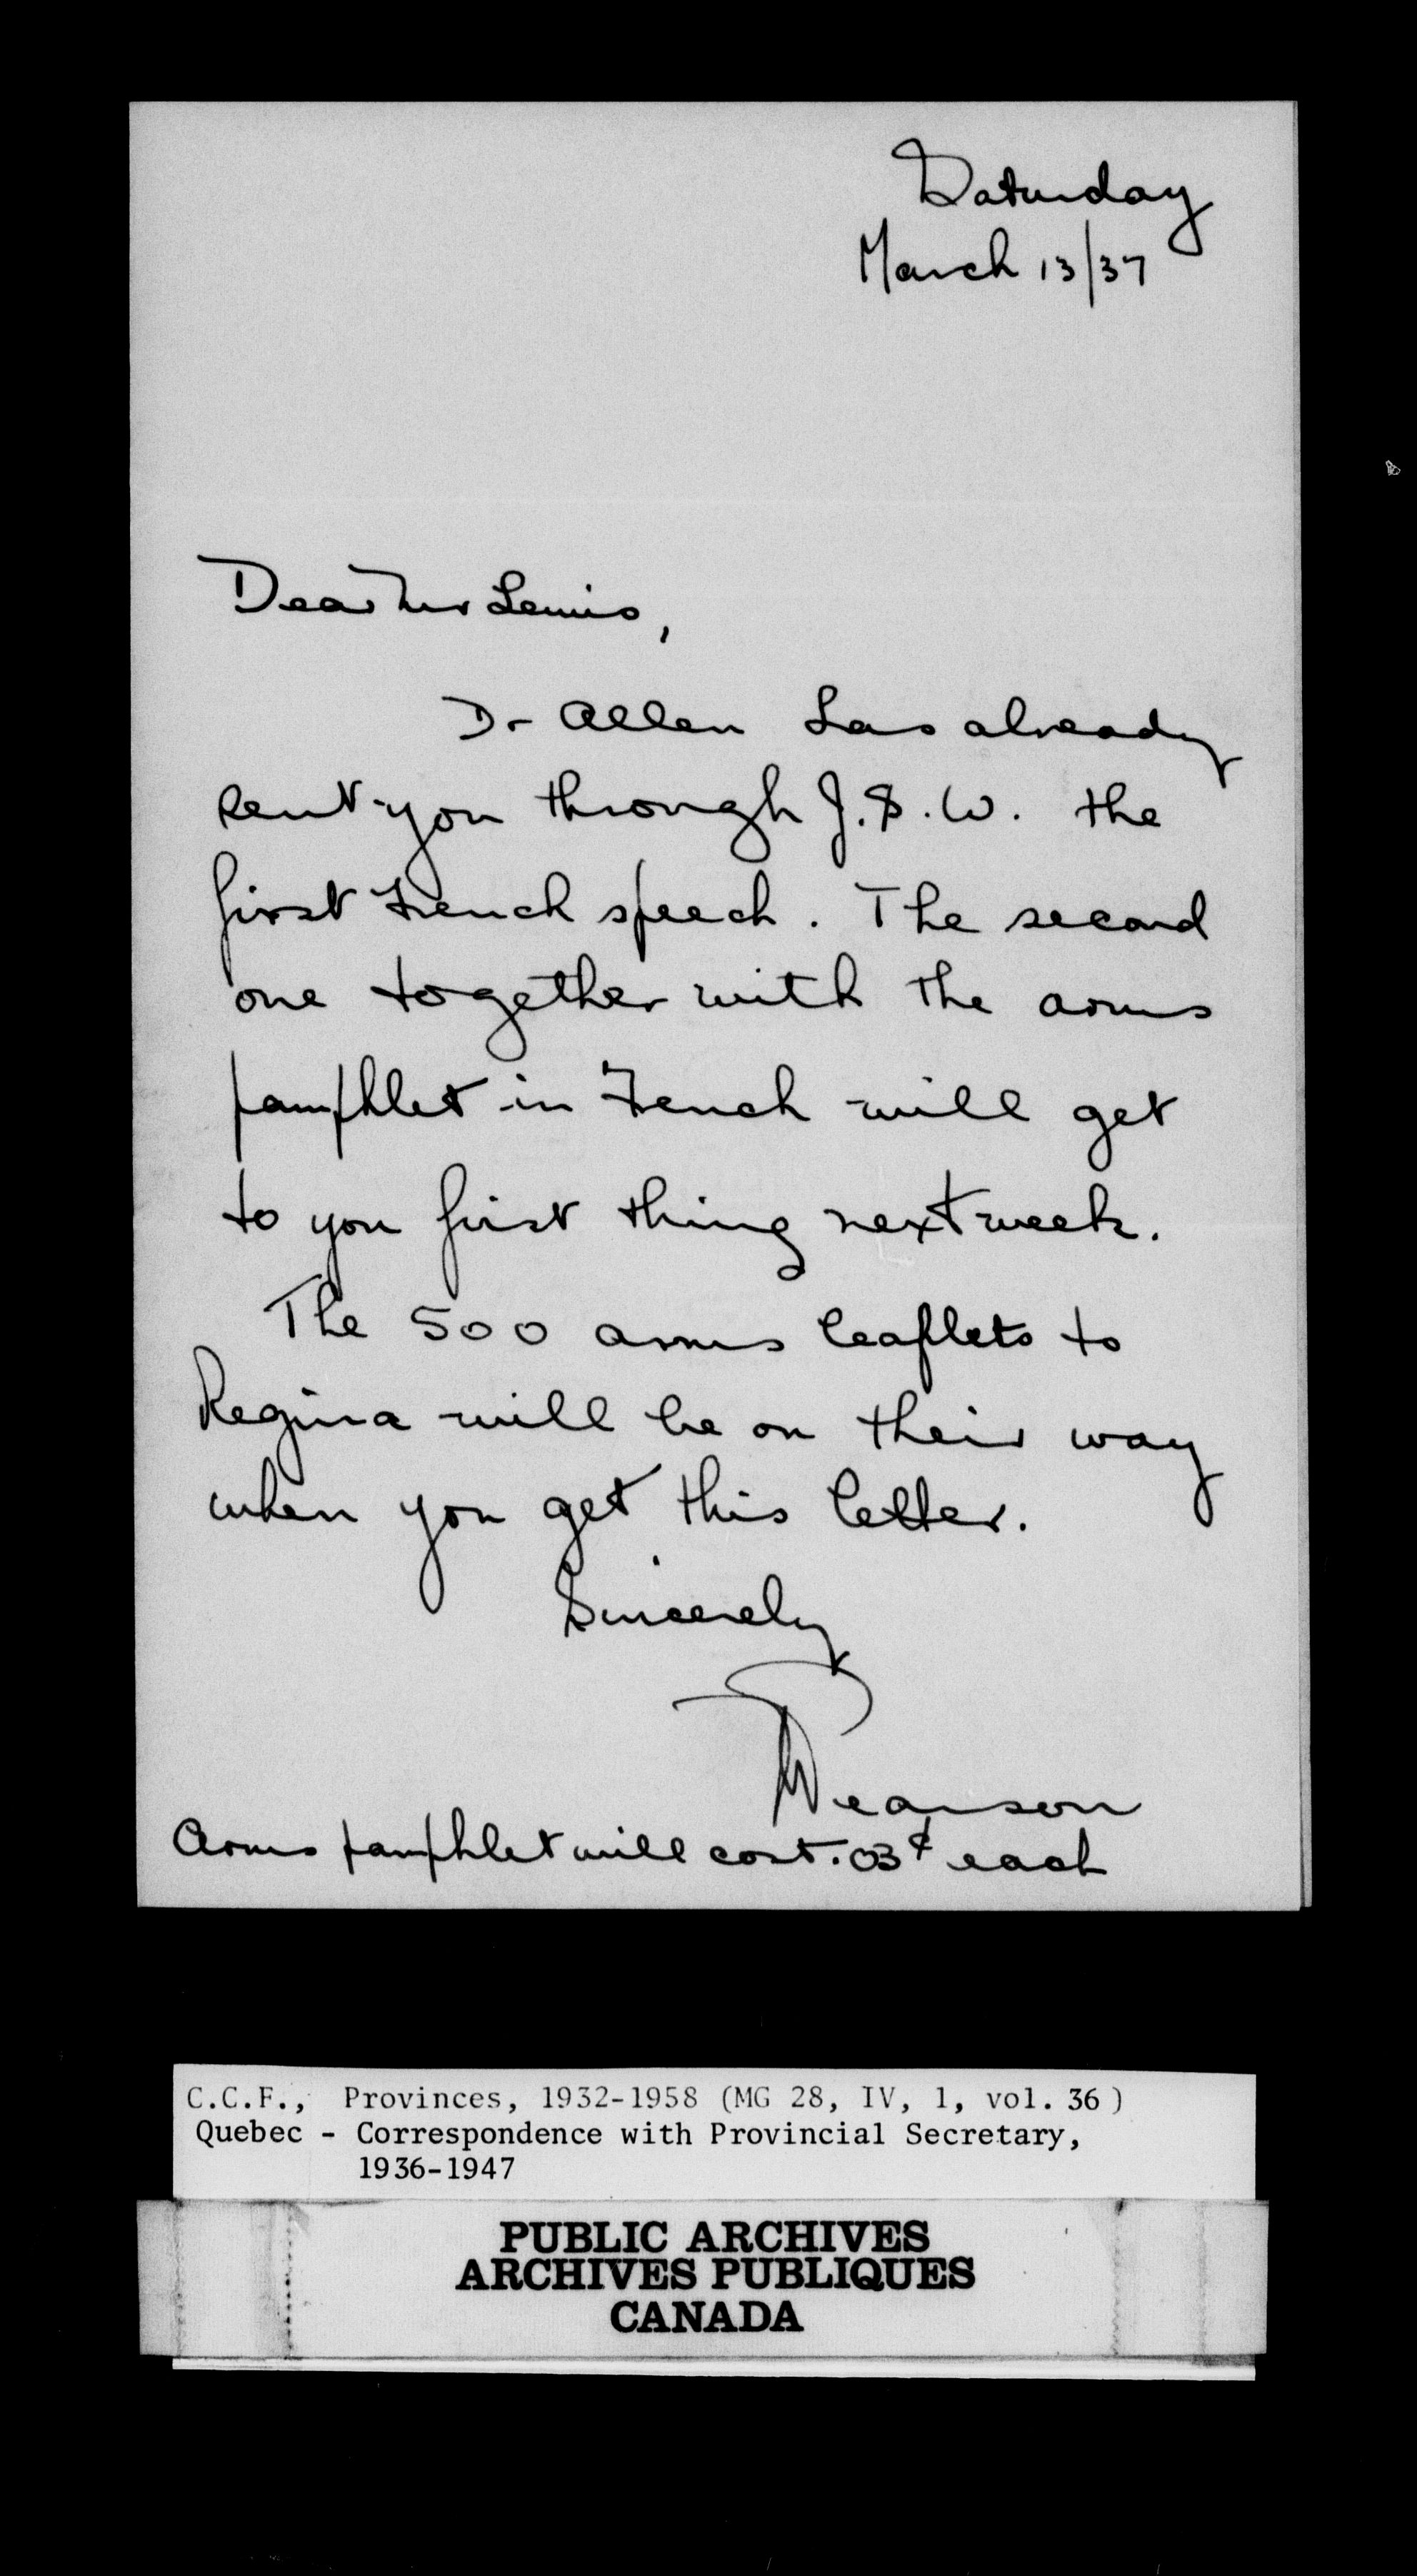 Saturday
March 13/37
Dear Mr Lewis,
Dr Allen has already
sent you through J.S.W. the
first French speech. The second
one together with the arms
pamphlet in French will get
to you first thing next week.
The 500 arms leaflets to
Regina will be on their way
when you get this letter.
Sincerely
Pearson
Arms pamphlet will cost .03¢ each
C.C.F., Provinces, 1932-1958 (MG 28, IV, 1, vol. 36)
Quebec - Correspondence with Provincial Secretary,
1936-1947
PUBLIC ARCHIVES
ARCHIVES PUBLIQUES
CANADA